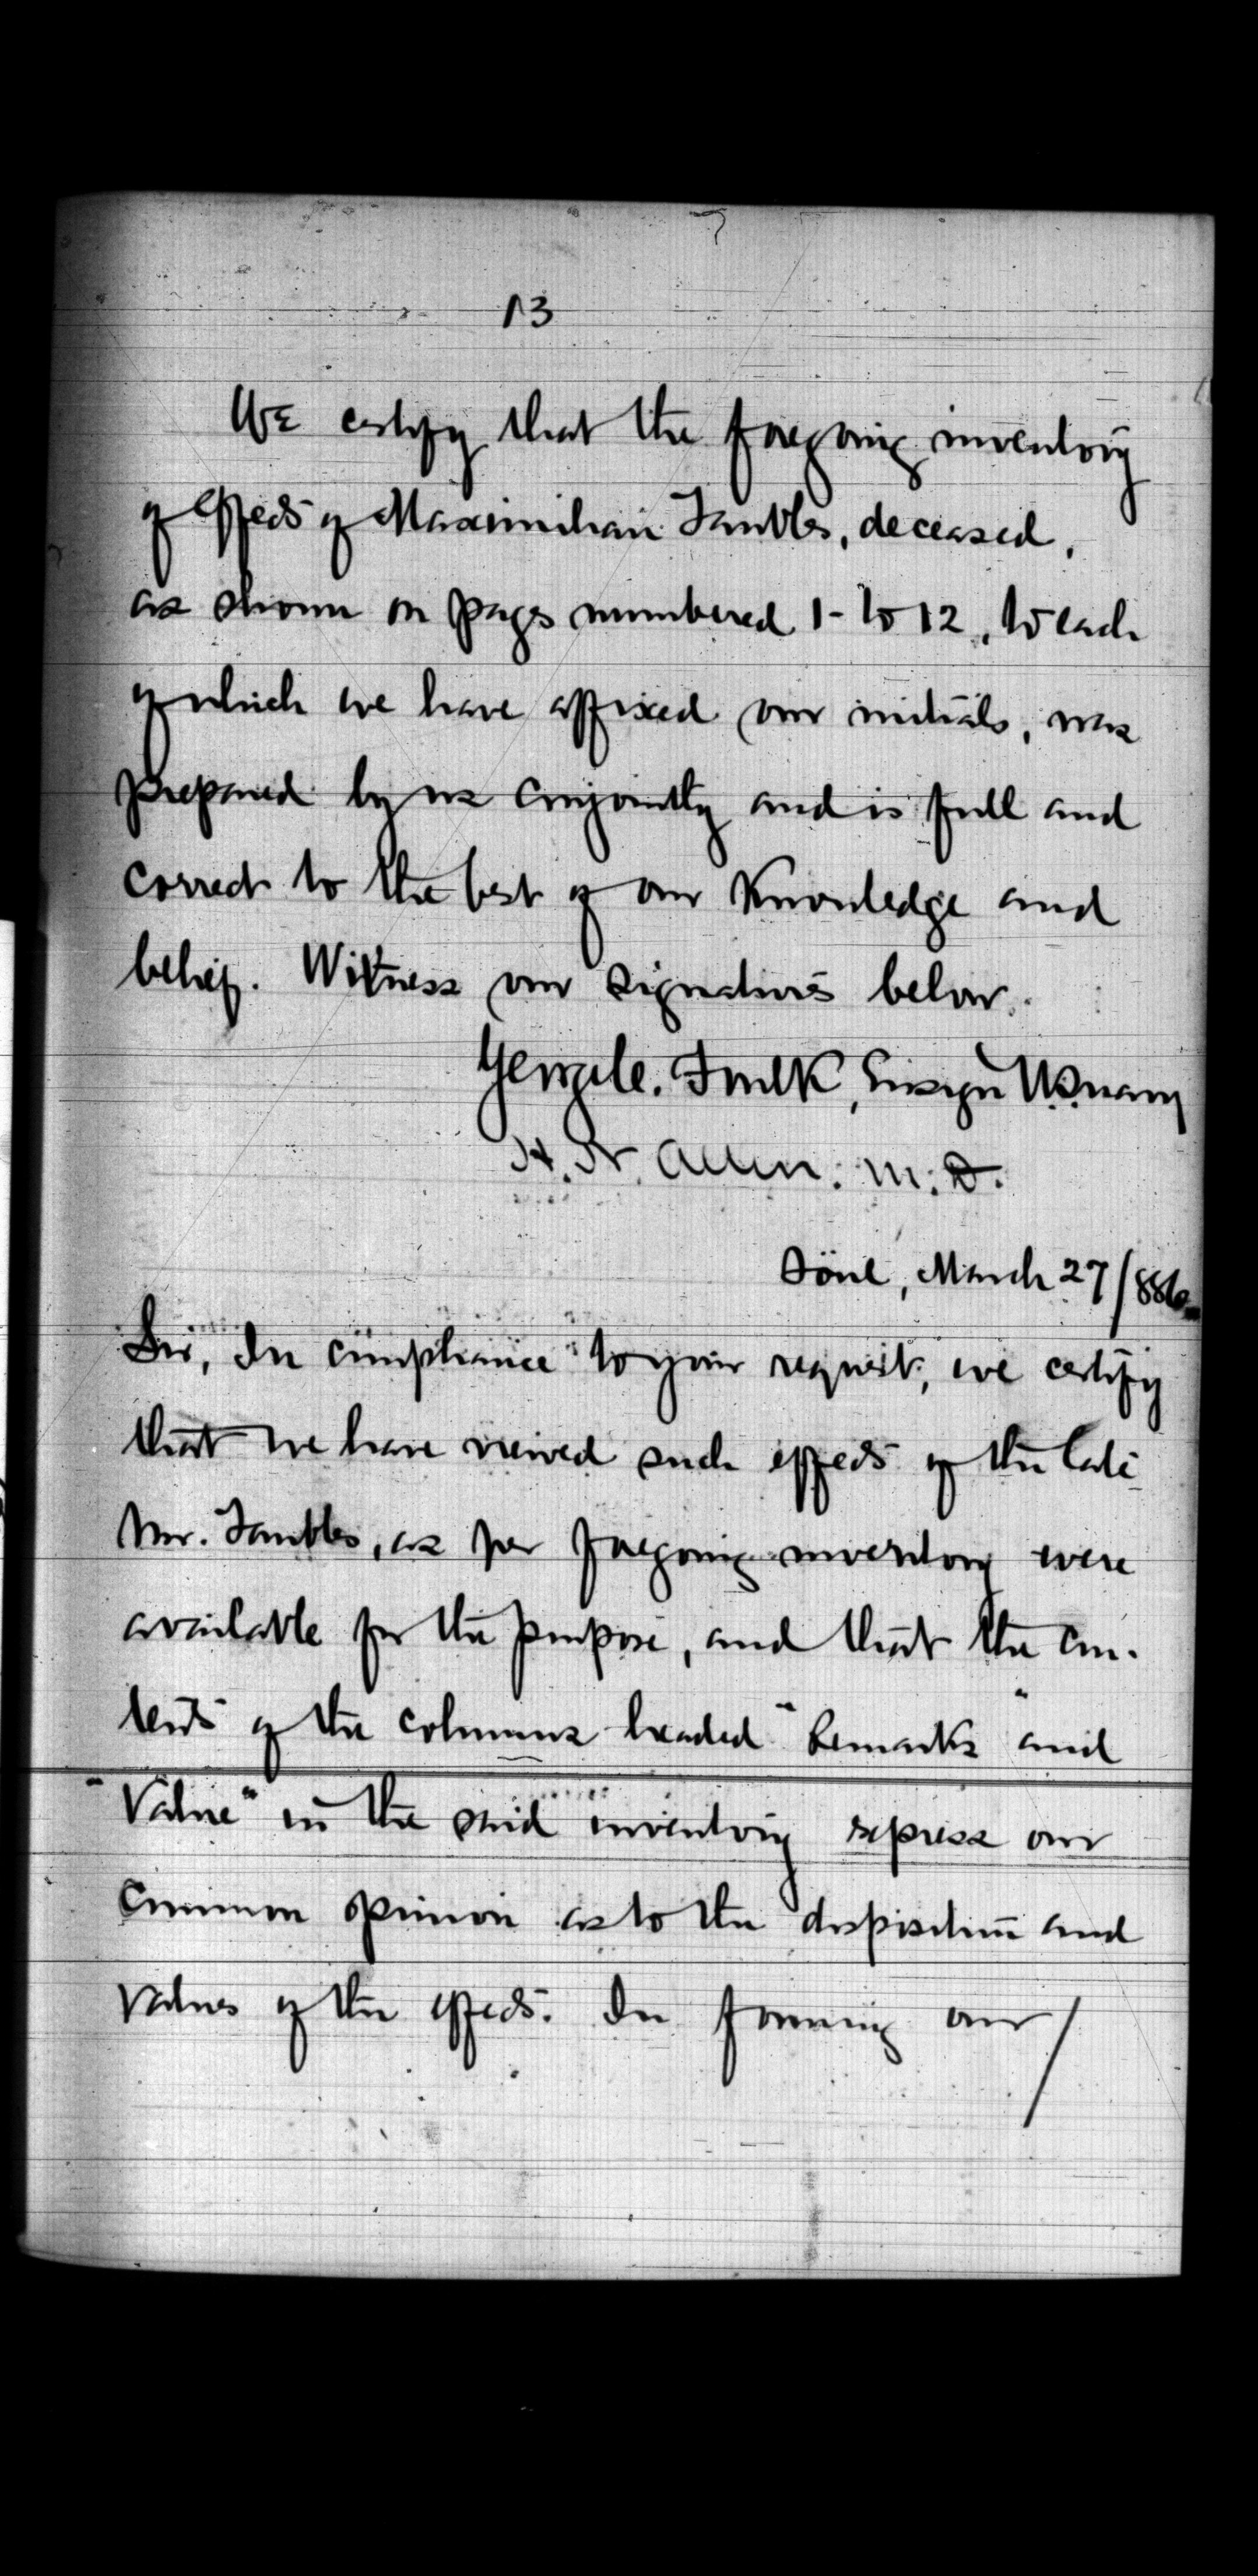 13
We certify that the foregoing inventory
of effects of Maximilian Taubles, deceased,
as shown on pages numbered 1- to 12, to each
of which we have affixed our initials, was
prepared by us conjointly and is full and
correct to the best of our Knowledge and
belief. Witness our signatures below.
George C. Foulk, Ensign U.S. Navy
H. N. Allen. M.D.
Söul, March 27/886
Sir, In compliance to your request, we certify
that we have viewed such effects of the late
Mr. Taubles, as per foregoing inventory were
available for the purpose, and that the con-
tents of the columns headed "Remarks" and
"Value" in the said inventory express our
common opinion as to the disposition and
values of the effects. In forming our